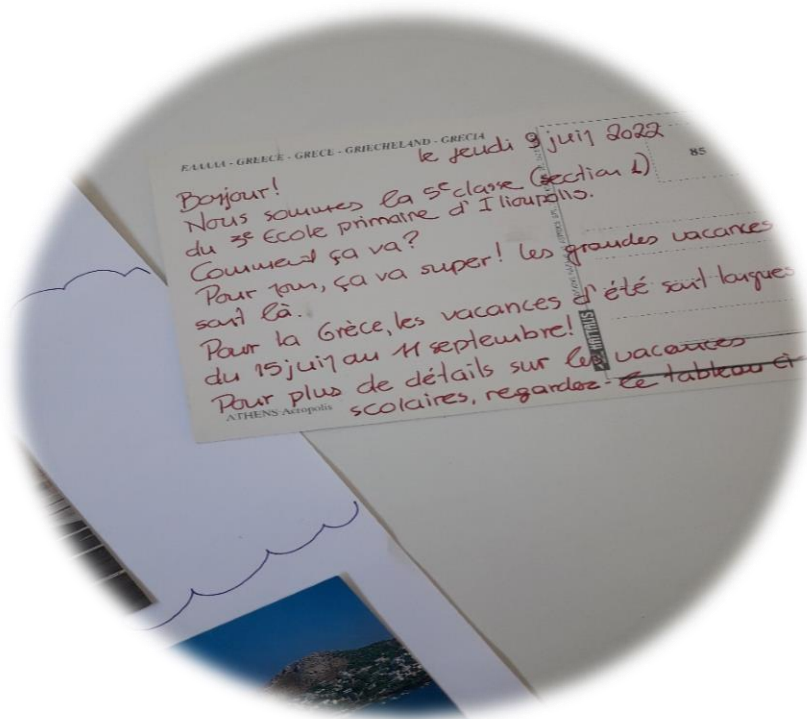 ΕΛΛΑΔΑ - GREECE - GRECE - GRIECHELAND - GRECIA
le jeudi 9 juin 2022
85
Bonjour!
Nous sommes la 5e classe (section 1)
du 3e Ecole primaire d'Ilioupolis.
Comment ça va?
Pour , ça va super! les grandes vacances
sont là.
Pour la Grèce, les vacances d'été sont longues
du 15 juin au 11 septembre!
Pour plus de détails sur les vacances
scolaires, regardez le tableau ci
ATHENS Acropolis